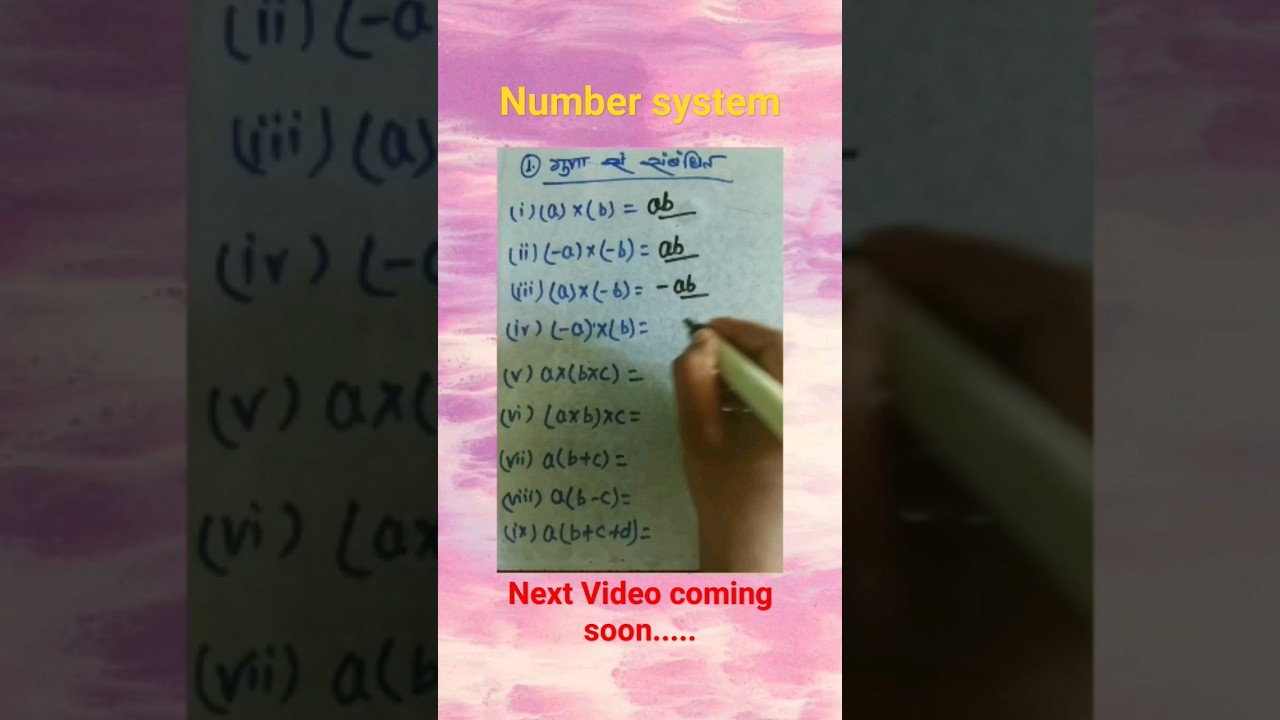 Number system
1. गुणा से संबंधित
(i) (a)×(b) = ab
(ii) (-a)×(-b) = ab
(iii) (a)×(-b) = -ab
(iv) (-a)×(b) =
(v) a×(b×c) =
(vi) (a×b)×c =
(vii) a(b+c) =
(viii) a(b-c) =
(ix) a(b+c+d) =
Next Video coming
soon.....
(ii) (-a
(iii) (a)
(iv) (-a
(v) a×(
(vi) (a×
(vii) a(b